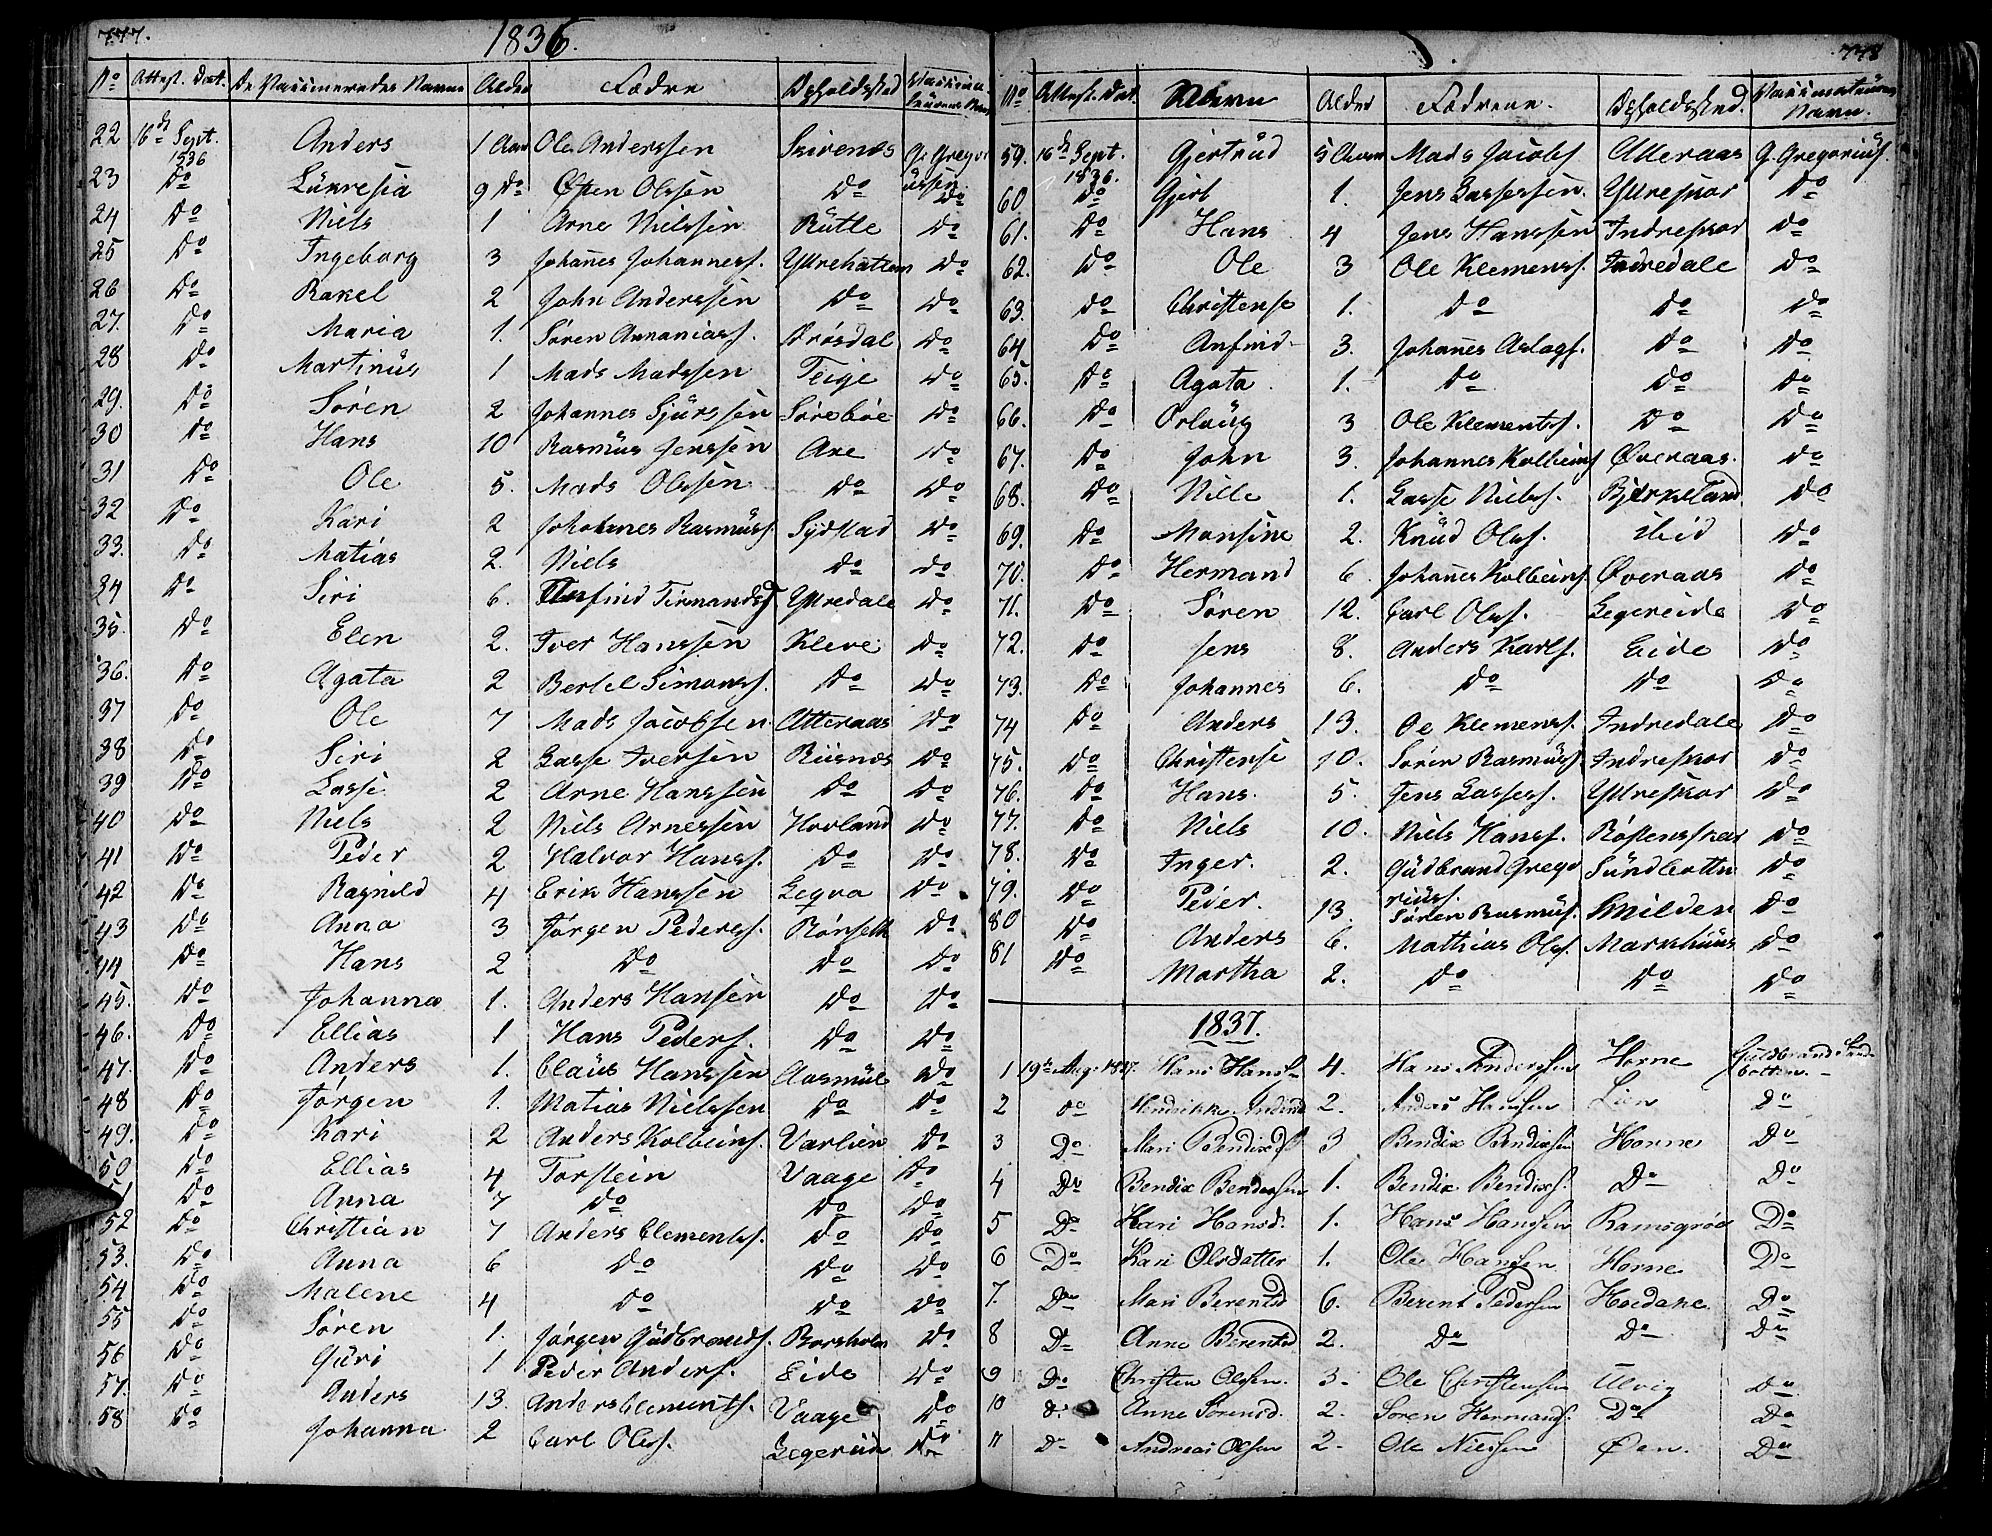 777.
1836.
No Attest. Dat. De Vaccineredes Navne Alder Fædre Opholdssted Vaccina-
teurens Navn
22 16de Sept. 1836 Anders 1 Aar Ole Anderssen Svirenes G. Gregori
ussen
23 Do Lükresia 9 Do Often Olssen Do Do
24 Do Niels 1 Arne Nielssen Rütle Do
25 Do Ingeborg 3 Johañes Johanness. Yttrehatlem Do
26 Do Rakel 2 John Anderssen Do Do
27. Do Maria 1. Søren Annaniass. Drøsdal Do
28 Do Martinüs 1 Mads Madssen Teige Do
29. Do Søren 2 Johannes Sjürssen Sørebøe Do
30 Do Hans 10 Rasmüs Jenssen Axe Do
31 Do Ole 5. Mads Olssen Do Do
32 Do Kari 2 Johannes Rasmüss. Sydstad Do
33. Do Matias 2. Niels Do Do
34 Do Siri 6. Anfind Firmands. Yttredale Do
35. Do Elen 2. Iver Hanssen Kleve Do
36. Do Agata 2 Bertel Simonss. Do Do
37 Do Ole 7 Mads Jacobsen Atteraas Do
38 Do Siri 2 Lasse Iversen Riisnes Do
39 Do Lasse 2 Arne Hanssen Do Do
40 Do Niels 2 Niels Arnessen Hovland Do
41 Do Peder 2 Halvor Hanss. Do Do
42 Do Ragnild 4 Erik Hanssen Leqva Do
43 Do Anna 3 Jørgen Pederss. Rønset Do
44 Do Hans 2 Do Do Do
45. Do Johanna 1. Anders Hansen Do Do
46. Do Ellias 1 Hans Peders. Do Do
47. Do Anders 1. Claüs Hanssen Aasmül Do
48 Do Jørgen 1. Matias Nielssen Do Do
49. Do Kari 2 Anders Kolbeins. Varlien Do
50 Do Ellias 4 Torstein Vaage Do
51 Do Anna 7 Do Do Do
52 Do Christian 7 Anders Clementss. Do Do
53. Do Anna 6 Do Do Do
54 Do Malene 4 Do Do Do
55 Do Søren 1. Jørgen Güdbrands. Borsholm Do
56 Do Güri 1 Peder Anders. Eide Do
57. Do Anders 13. Anders Clements. Vaage Do
58 Do Johanna 2 Carl Olss. Legereid Do
778
No Attest. Dat. Navn Alder Fædrene. Opholdssted. Vaccinateurens
Navn.
59. 16de Sept. 1836. Gjertrüd 5 Aar Mads Jacobs. Atteraas G. Gregoriüs.
60 Do Gjert 1. Jens Lassessen. Yttreskor Do
61. Do Hans 4 Jens Hanssen Indreskor Do
62. Do Ole 3 Ole Klemenss. Indredale Do
63. Do Christense 1. Do Do Do
64 Do Anfind 3. Johañes Aslags. Do Do
65. Do Agata 1. Do Do Do
66. Do Orlaüg 3 Ole Klementss. Do Do
67. Do John 3. Johannes Kolbeins Øveraas. Do
68. Do Nille 1. Lasse Nielss. Bjerkeland Do
69. Do Monsine 2. Knüd Olss. ibid Do
70. Do Hermand 6. Johañes Kolbeins. Øveraas Do
71. Do Søren 12. Carl Olss. Legereide Do
72. Do Jens 8. Anders Karls. Eide Do
73. Do Johannes 6. Do Do Do
74 Do Anders 13. Oe Klemenss. Indredale Do
75. Do Christense 10. Søren Rasmüss Indreskor Do
76. Do Hans. 5. Jens Lassess. Yttreskor Do
77. Do Niels 10. Niels Hanss. Røstenskar Do
78. Do Inger. 2. Güdbrand Grego
riüss. Sündbotten Do
79. Do Peder. 13. Søren Rasmüs. Smilden Do
80 Do Anders 6. Mathias Olss. Markhüüs Do
81 Do Martha 2. Do Do Do
1837.
1 19de Aug. 1837. Hans Hanss 4. Hans Anderssen Horne Guldbrand Sund-
botten.
2 do Hendrikke Andersd 2. Anders Hanssen Lien Do
3 Do Mari Bendixd 3 Bendix Bendixsen Horne Do
4 Do Bendix Bendixsen 1. Bendix Bendixs. Do Do
5 Do Kari Hansd. 1. Hans Hanssen Ramsgrøe Do
6 Do Kari Olsdatter 1. Ole Hansen Horne Do
7. Do Mari Berentsd 6. Berent Pedersen Hordane Do
8 Do Anne Berentsd 2. Do Do Do
9 Do Christen Olssen. 3. Ole Christensen Ulvig Do
10 d. Anne Sørensd. 2. Søren Hermands. Do Do
11 Do Andreas Olsen 2. Ole Nilssen Øen. Do